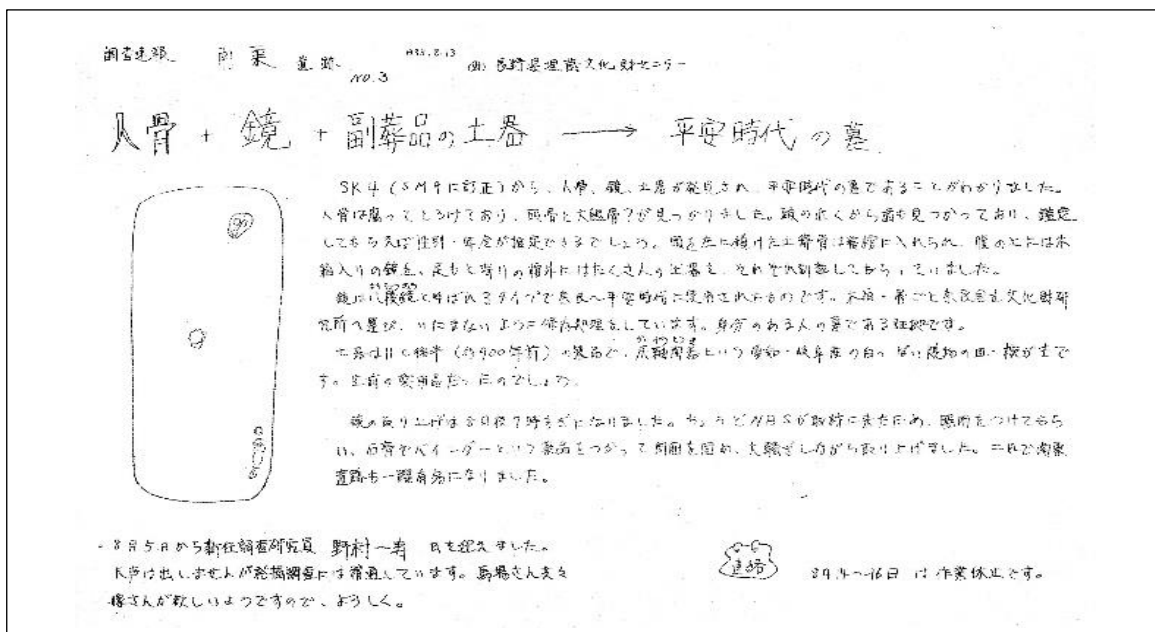 調査速報 南栗遺跡 no.3 (財)長野県埋蔵文化財センター
人骨 + 鏡 + 副葬品の土器 → 平安時代の墓
SK4 (SM9に訂正)から、人骨、鏡、土器が発見され、平安時代の墓であることがわかりました。
人骨は腐ってとろけており、頭骨と大腿骨?が見つかりました。頭の近くから歯も見つかっており、鑑定
してもらえば性別・年令が推定できるでしょう。頭を北に向けた土葬骨は木棺に入れられ、腹の上には木
箱入りの鏡を、足もと寄りの棺外にはたくさんの土器を、それぞれ副葬してもらっていました。
鏡は八稜鏡と呼ばれるタイプで奈良〜平安時代に使用されたものです。木棺・骨ごと奈良国立文化財研
究所へ運び、いたまないように保存処理をしています。身分のある人の墓である証拠です。
土器は11C後半(約900年前)の製品で、灰釉陶器という愛知・岐阜産の白っぽい焼物の皿・椀が主で
す。生前の実用品だったのでしょう。
鏡の取り上げは8日夜7時すぎになりました。ちょうどNHKが取材に来たため、照明をつけてもら
い、石膏やバインダーという薬品をつかって周囲を固め、大騒ぎしながら取り上げました。これで南栗
遺跡も一躍有名になりました。
8月5日から新任調査研究員 野村一寿 氏を迎えました。
大声は出しませんが発掘調査には精通しています。馬場さん共々
嫁さんが欲しいようですので、よろしく。
連絡 8月14〜16日 は作業休止です。